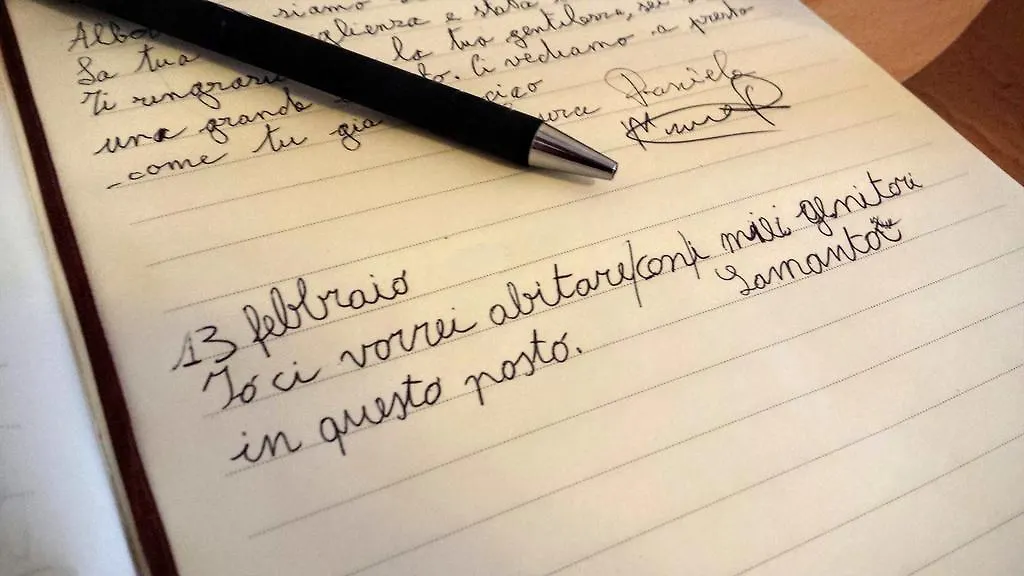 siamo
Alber
La tua glienza e stata
Ti ringrazi la tua gentilezza, sei
una grande to. Ci vediamo a presto
-come tu già ciao
Daniela
13 febbraio
Io ci vorrei abitare (con i miei genitori
in questo posto. Samanta